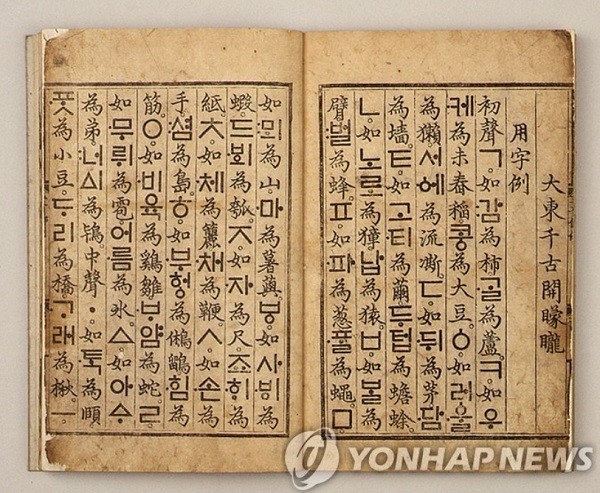 大東千古開矇矓
用字例
初聲ㄱ。如감為柿。ᄀᆞᆯ為蘆。ㅋ。如우
케為未舂稻。콩為大豆。ㆁ。如러울
為獺。서에為流凘。ㄷ。如뒤為茅。담
為墻。ㅌ。如고티為繭。두텁為蟾蜍。
ㄴ。如노로為獐。납為猿。ㅂ。如ᄇᆞᆯ為
臂。벌為蜂。ㅍ。如파為葱。ᄑᆞᆯ為蠅。ㅁ。
如뫼為山。마為薯藇。ㅸ。如사ᄫᅵ為
蝦。드ᄫᅴ為瓠。ㅈ。如자為尺。죠ᄒᆡ為
紙。ㅊ。如체為籭。채為鞭。ㅅ。如손為
手。셤為島。ㅎ。如부헝為鵂鶹。힘為
筋。ㅇ。如비육為鷄雛。ᄇᆞ얌為蛇。ㄹ。
如무뤼為雹。어름為氷。ㅿ。如아ᅀᆞ
為弟。너ᅀᅵ為鴇。中聲ㆍ。如ᄐᆞᆨ為頤。
ᄑᆞᆺ為小豆。ᄃᆞ리為橋。ᄀᆞ래為楸。ㅡ。
YONHAP NEWS